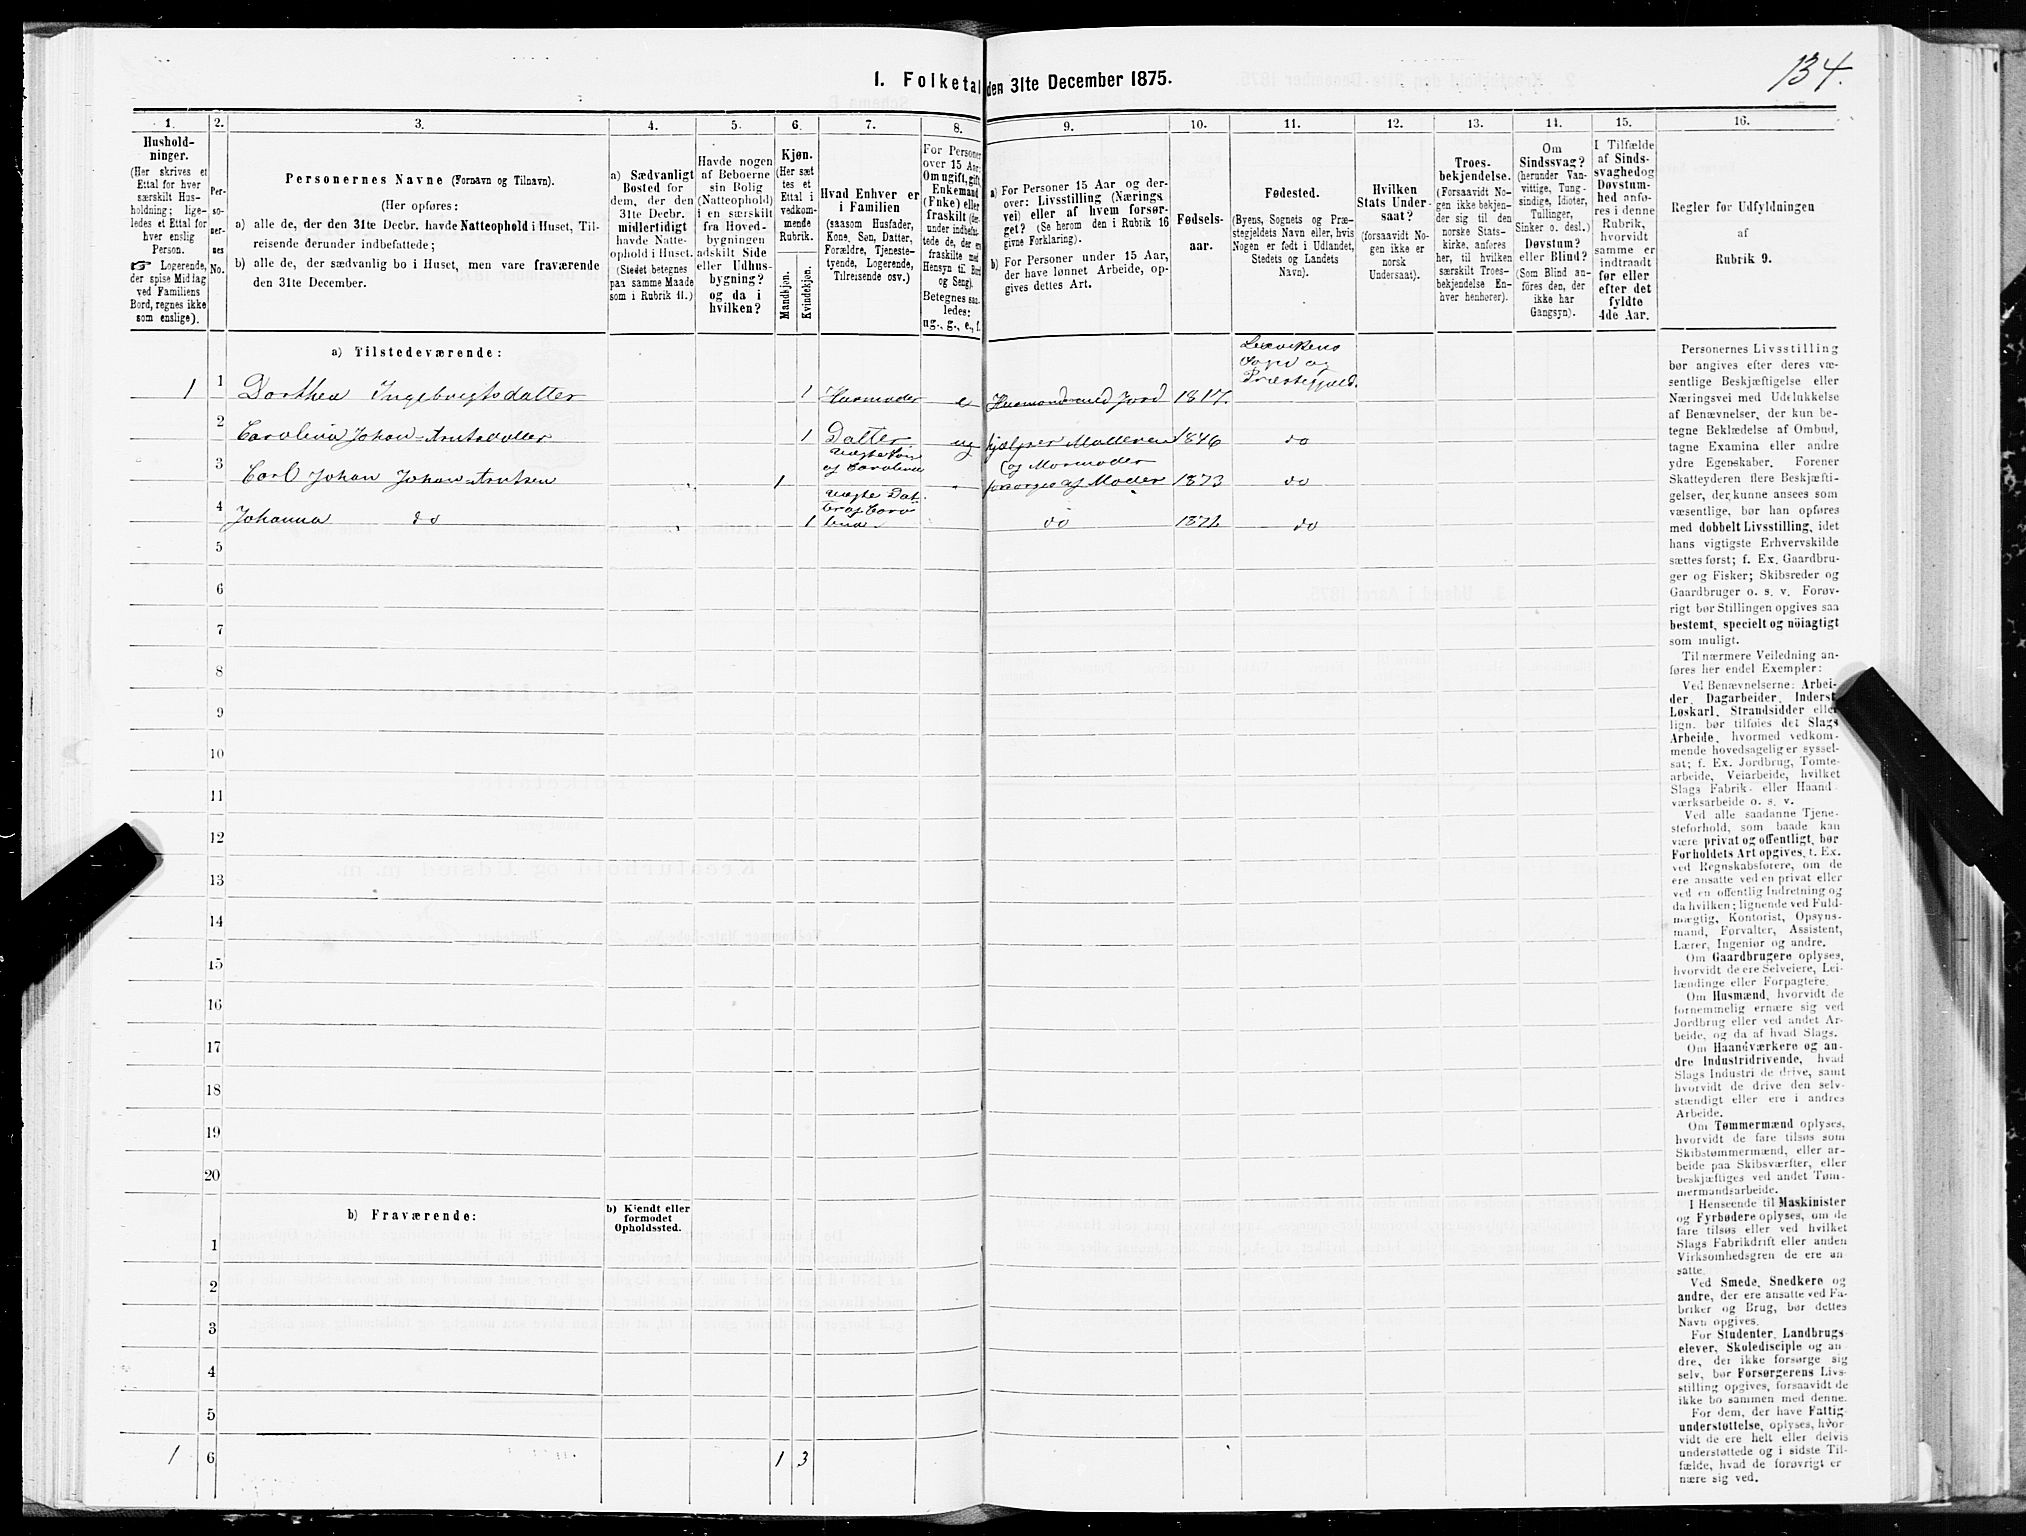 134.
1. Folketal den 31te December 1875.
1.
2.
3.
4.
5.
6.
7.
8.
9.
10.
11.
12.
13.
14.
15.
16.
Hushold-
ninger.
(Her skrives et
Ettal for hver
særskilt Hus-
holdning; lige-
ledes et Ettal for
hver enslig
Person.
☞ Logerende,
der spise Middag
ved Familiens
Bord, regnes ikke
som enslige).
Per-
so-
ner-
nes
No.
Personernes Navne (Fornavn og Tilnavn).
(Her opføres:
a) alle de, der den 31te Decbr. havde Natteophold i Huset, Til-
reisende derunder indbefattede;
b) alle de, der sædvanlig bo i Huset, men vare fraværende
den 31te December.
a) Sædvanligt
Bosted for
dem, der den
31te Decbr.
midlertidigt
havde Natte-
ophold i Huset.
(Stedet betegnes
paa samme Maade
som i Rubrik 11.)
Havde nogen
af Beboerne
sin Bolig
(Natteophold)
i en særskilt
fra Hoved-
bygningen
adskilt Side
eller Udhus-
bygning?
og da i
hvilken?
Kjøn.
(Her sæt
tes et
Ettal i
vedkom-
mende
Rubrik.
Mandkjøn.
Kvindekjøn.
Hvad Enhver er
i Familien
(saasom Husfader,
Kone, Søn, Datter,
Forældre, Tjeneste-
tyende, Logerende,
Tilreisende osv.)
For Personer
over 15 Aar:
Om ugift, gift,
Enkemand
(Enke) eller
fraskilt (der-
under indbefat-
tede de, der ere
fraskilte med
Hensyn til Bord
og Seng).
Betegnes saa-
ledes:
ug., g., e., f.
a) For Personer 15 Aar og der-
over: Livsstilling (Nærings
vei) eller af hvem forsør-
get? (Se herom den i Rubrik 16
givne Forklaring).
b) For Personer under 15 Aar,
der have lønnet Arbeide, op-
gives dettes Art.
Fødsels-
aar.
Fødested.
(Byens, Sognets og Præ-
stegjeldets Navn eller, hvis
Nogen er født i Udlandet,
Stedets og Landets
Navn).
Hvilken
Stats Under-
saat?
(forsaavidt No-
gen ikke er
norsk
Undersaat).
Troes-
bekjendelse.
(Forsaavidt No-
gen ikke bekjen-
der sig til den
norske Stats-
kirke, anføres
her, til hvilken
særskilt Troes-
bekjendelse En-
hver henhører).
Om
Sindssvag?
(herunder Van-
vittige, Tung-
sindige, Idioter,
Tullinger,
Sinker o. desl.)
Døvstum?
eller Blind?
(Som Blind an-
føres den, der
ikke har
Gangsyn).
I Tilfælde
af Sinds-
svaghed og
Døvstum-
hed anfø-
res i denne
Rubrik,
hvorvidt
samme er
indtraadt
før eller
efter det
fyldte
4de Aar.
Regler for Udfyldningen
af
Rubrik 9.
a) Tilstedeværende:
1 1 Dorthea Ingebrigtsdatter 1 Husmoder e Husmand med Jord 1817. Lexvikens Sogn og Præstegjeld.
2 Carolina Johan-Arntsdatter 1 Datter ug hjælper Moderen 1846 do
3 Carl Johan Johan-Arntsen 1 Uægte Søn af Carolina " forsørges af Moder og Mormoder 1873 do
4 Johanna do 1 Uægte Datter af Carolina do 1872 do
5
6
7
8
9
10
11
12
13
14
15
16
17
18
19
20
b) Fraværende:
b) Kjendt eller
formodet
Opholdssted.
1
2
3
4
5
1 6 1 3
Personernes Livsstilling
bør angives efter deres væ-
sentlige Beskjæftigelse eller
Næringsvei med Udelukkelse
af Benævnelser, der kun be-
tegne Beklædelse af Ombud,
tagne Examina eller andre
ydre Egenskaber. Forener
Skatteyderen flere Beskjæfti-
gelser, der kunne ansees som
væsentlige, bør han opføres
med dobbelt Livsstilling, idet
hans vigtigste Erhvervskilde
sættes først; f. Ex. Gaardbru-
ger og Fisker; Skibsreder og
Gaardbruger o. s. v. Forøv-
rigt bør Stillingen opgives saa
bestemt, specielt og nöiagtigt
som muligt.
Til nærmere Veiledning an-
føres her endel Exempler:
Ved Benævnelserne: Arbei-
der, Dagarbeider, Inderst,
Løskarl, Strandsidder eller
lign. bør tilføies det Slags
Arbeide, hvormed vedkom-
mende hovedsagelig er syssel-
sat; f. Ex. Jordbrug, Tomte-
arbeide, Veiarbeide, hvilket
Slags Fabrik- eller Haand-
værksarbeide o. s. v.
Ved alle saadanne Tjene-
steforhold, som baade kan
være privat og offentligt, bør
Forholdets Art opgives, t. Ex.
ved Regnskabsførere, om de
ere ansatte ved en privat eller
ved en offentlig Indretning og
da hvilken; lignende ved Fuld-
mægtig, Kontorist, Opsyns-
mand, Forvalter, Assistent,
Lærer, Ingeniør og andre.
Om Gaardbrugere oplyses,
hvorvidt de ere Selveiere, Lei-
lændinge eller Forpagtere.
Om Husmænd, hvorvidt de
fornemmelig ernære sig ved
Jordbrug eller ved andet Ar-
beide, og da af hvad Slags.
Om Haandværkere og an-
dre Industridrivende, hvad
Slags Industri de drive, samt
hvorvidt de drive den selv-
stændigt eller ere i andres
Arbeide.
Om Tømmermænd oplyses,
hvorvidt de fare tilsøs som
Skibstømmermænd, eller ar-
beide paa Skibsværfter, eller
beskjæftiges ved andet Tøm-
mermandsarbeide.
I Henseende til Maskinister
og Fyrbødere oplyses, om de
fare tilsøs eller ved hvilket
Slags Fabrikdrift eller anden
Virksomhedsgren de ere an-
satte.
Ved Smede, Snedkere og
andre, der ere ansatte ved Fa-
briker og Brug, bør dettes
Navn opgives.
For Studenter, Landbrugs-
elever, Skoledisciple og an-
dre, der ikke forsørge sig
selv, bør Forsørgerens Livs-
stilling opgives, forsaavidt de
ikke bo sammen med denne.
For dem, der have Fattig-
understøttelse, oplyses, hvor-
vidt de ere helt eller delvis
understøttede og i sidste Til-
fælde, hvad de forøvrigt er
nære sig ved.